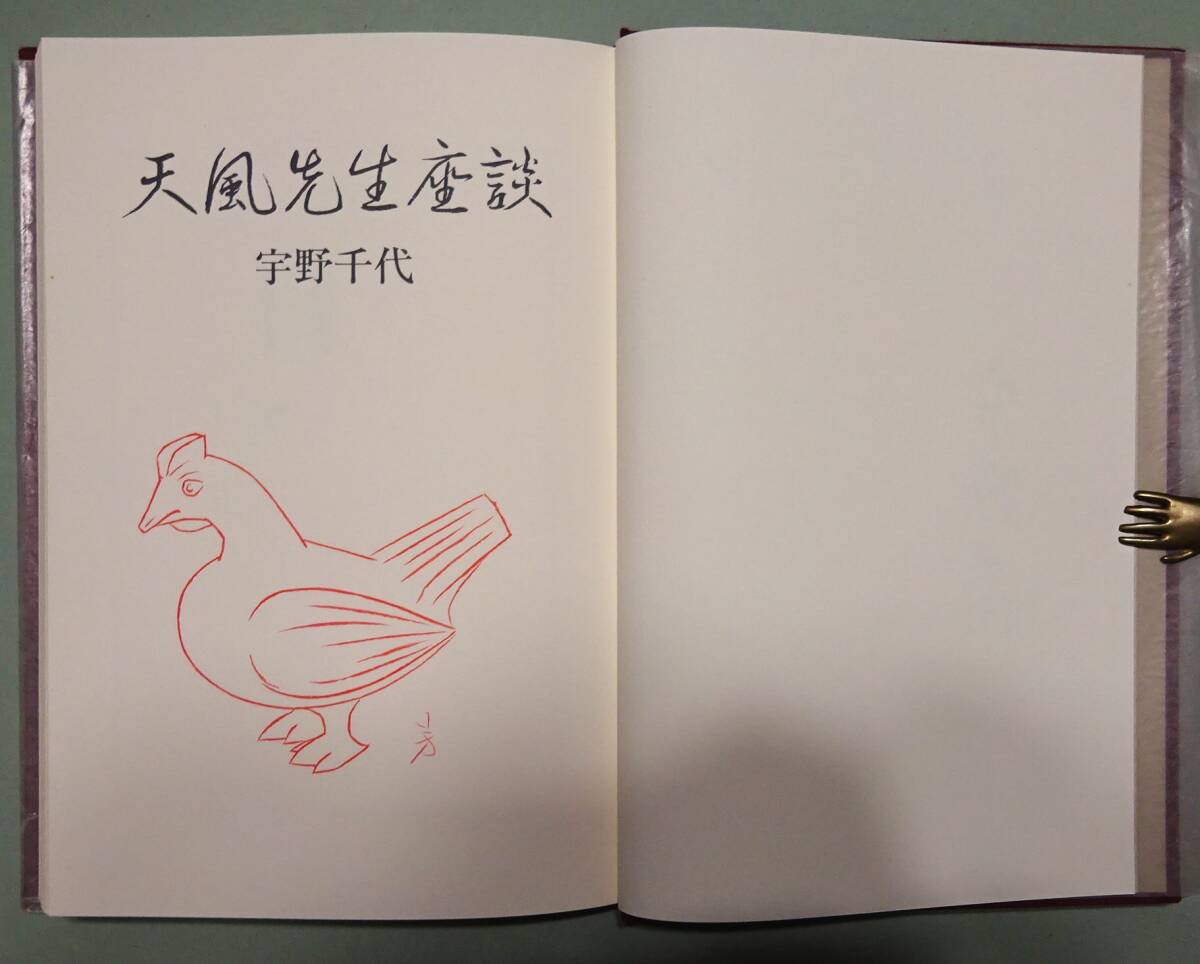 天風先生座談
宇野千代